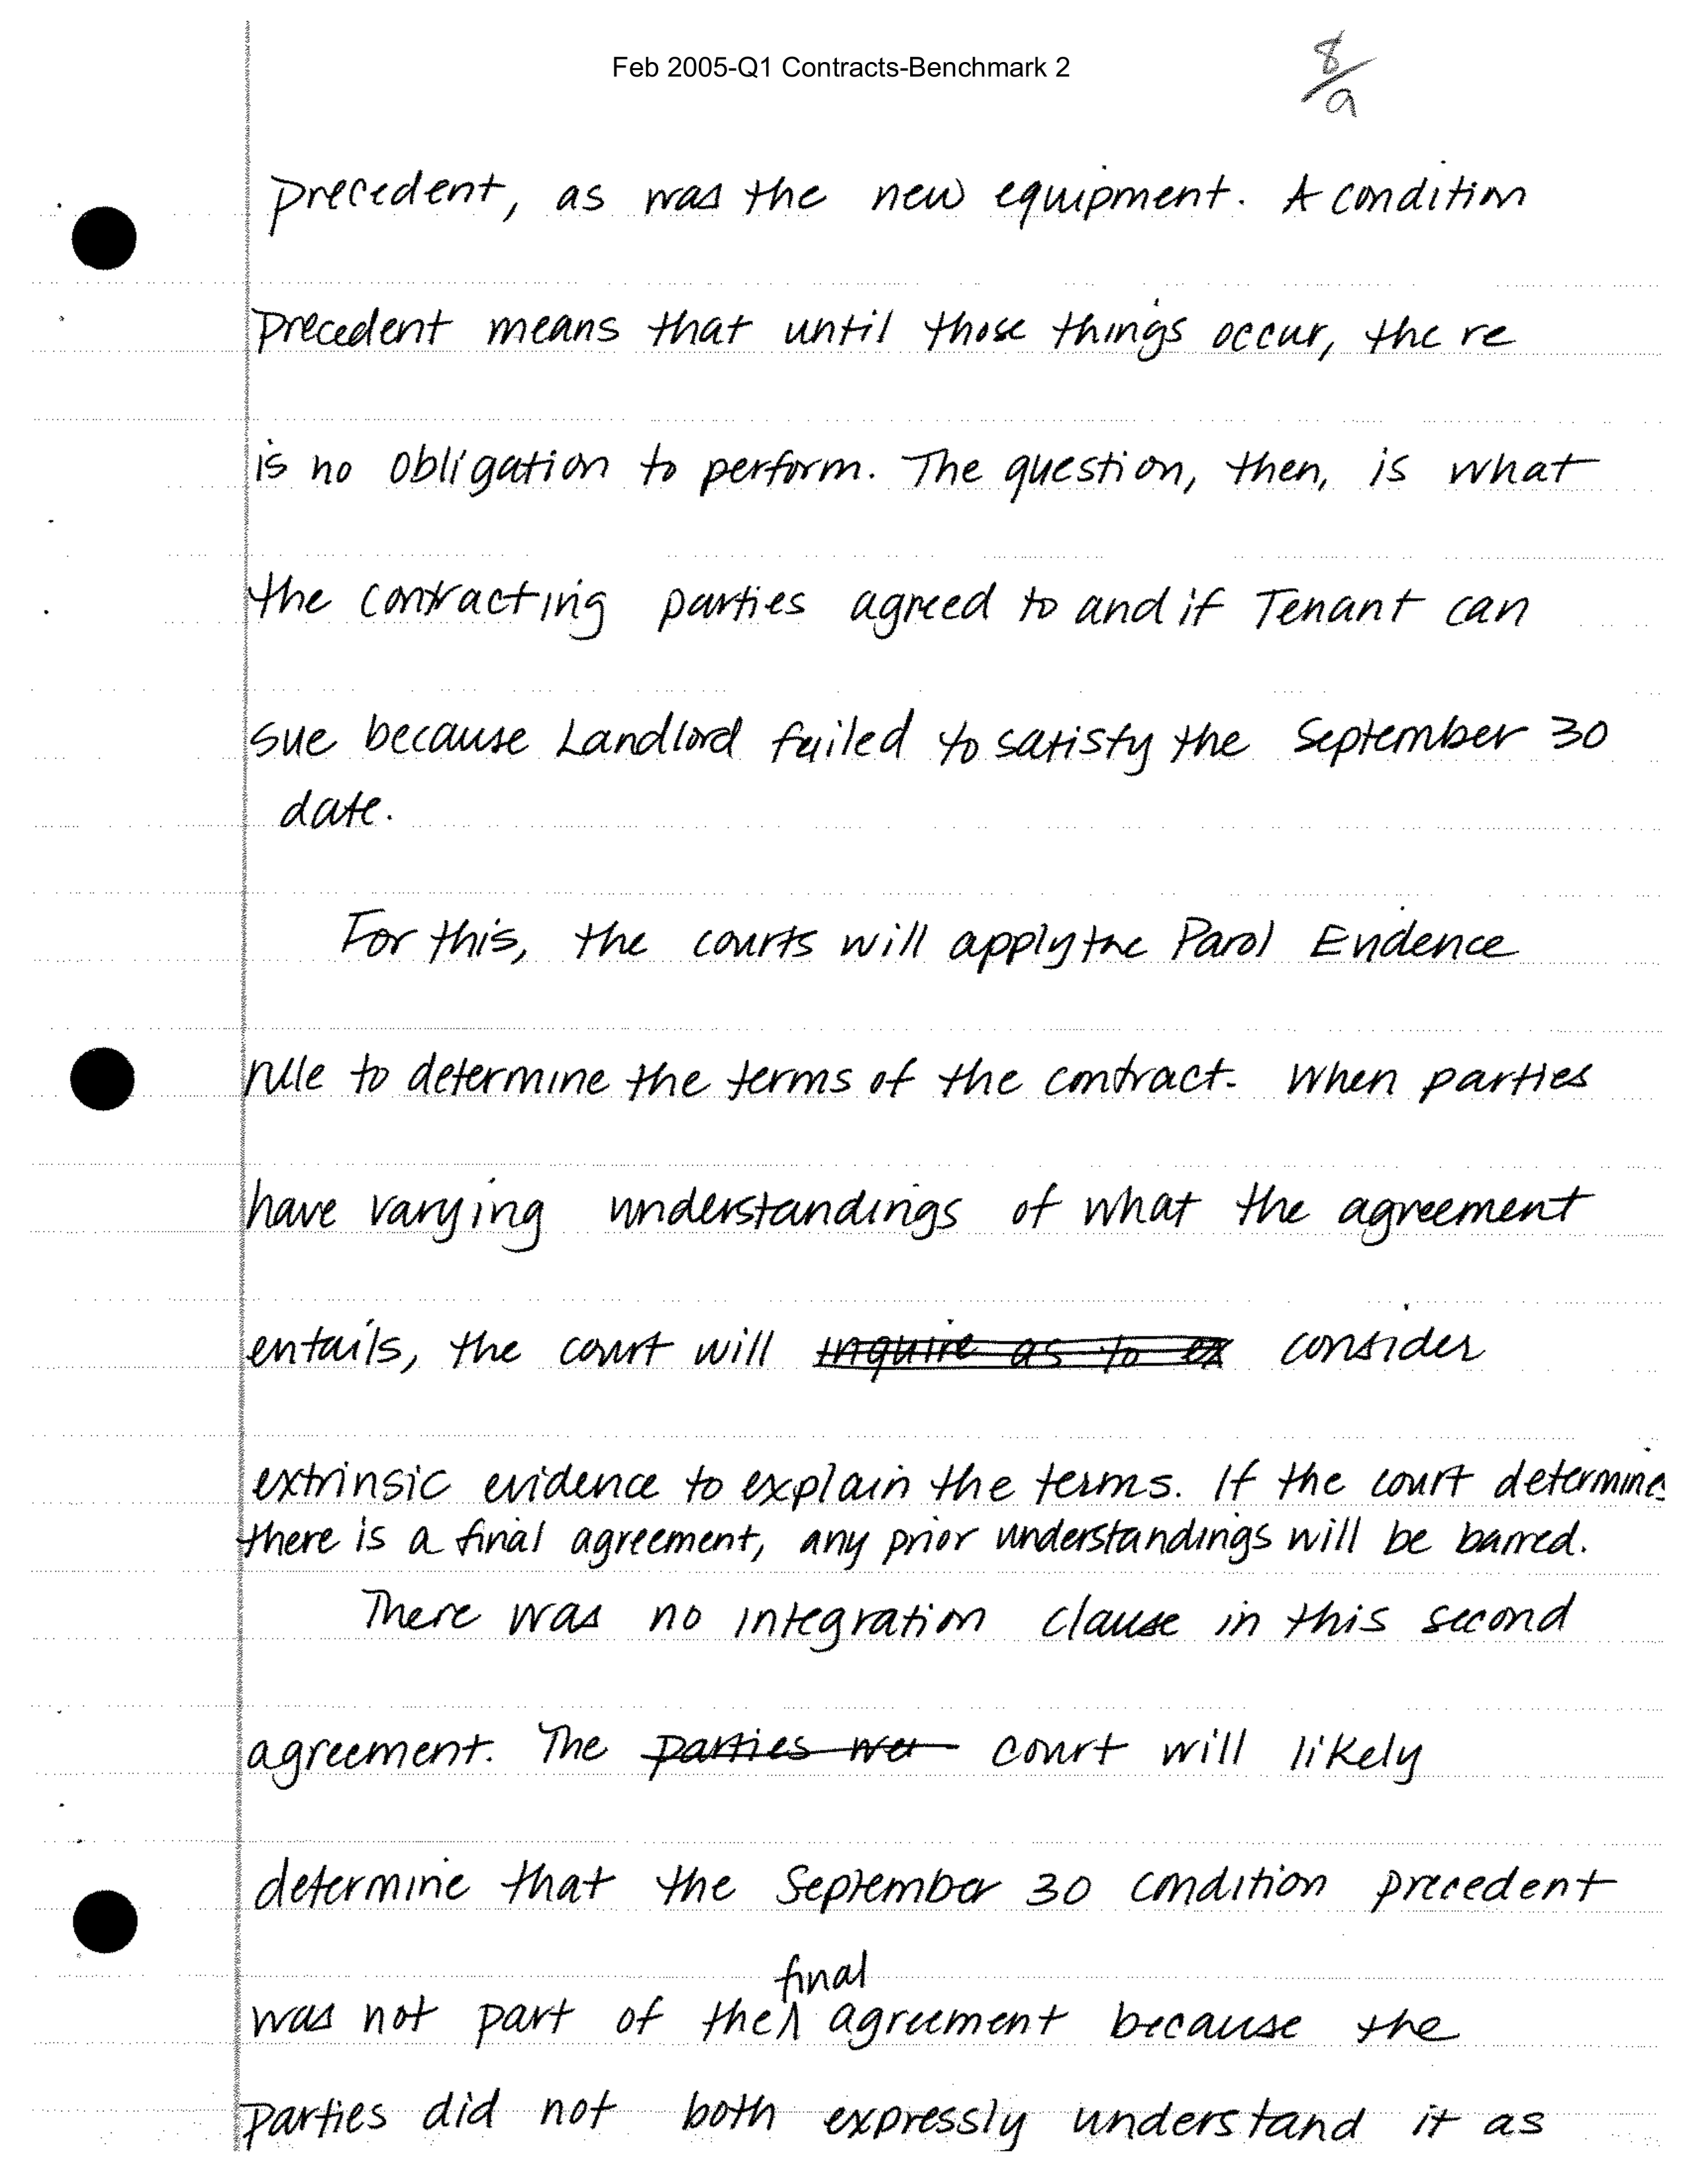 Feb 2005-Q1 Contracts-Benchmark 2
8/9
precedent, as was the new equipment. A condition
precedent means that until those things occur, there
is no obligation to perform. The question, then, is what
the contracting parties agreed to and if Tenant can
sue because Landlord failed to satisfy the September 30
date.
For this, the courts will apply the Parol Evidence
rule to determine the terms of the contract. When parties
have varying understandings of what the agreement
entails, the court will inquire as to ex consider
extrinsic evidence to explain the terms. If the court determines
there is a final agreement, any prior understandings will be barred.
There was no integration clause in this second
agreement. The parties wer court will likely
determine that the September 30 condition precedent
final
was not part of the agreement because the
parties did not both expressly understand it as